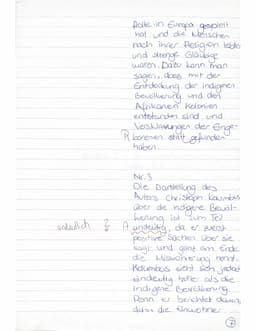 Rolle in Europa gespielt
hat und die Menschen
nach ihrer Religion lebten
und strenge Gläubige
waren. Dazu kann man
sagen, dass mit der
Entdeckung der indigenen
Bevölkerung und den
Afrikanern Kolonien
entstanden sind und
Versklavungen der Einge-
R borenen statt gefunden
haben.
Nr. 3
Die Darstellung des
Autors Christoph Kolumbus
über die indigene Bevöl-
kerung ist zum Teil
A undeutig, da er zuerst
positive Sachen über sie
sagt und ganz am Ende
die Missionierung nennt.
Kolumbus sieht sich jedoch
eindeutig höher als die
indigene Bevölkerung.
Denn er berichtet davon,
dass die Einwohner